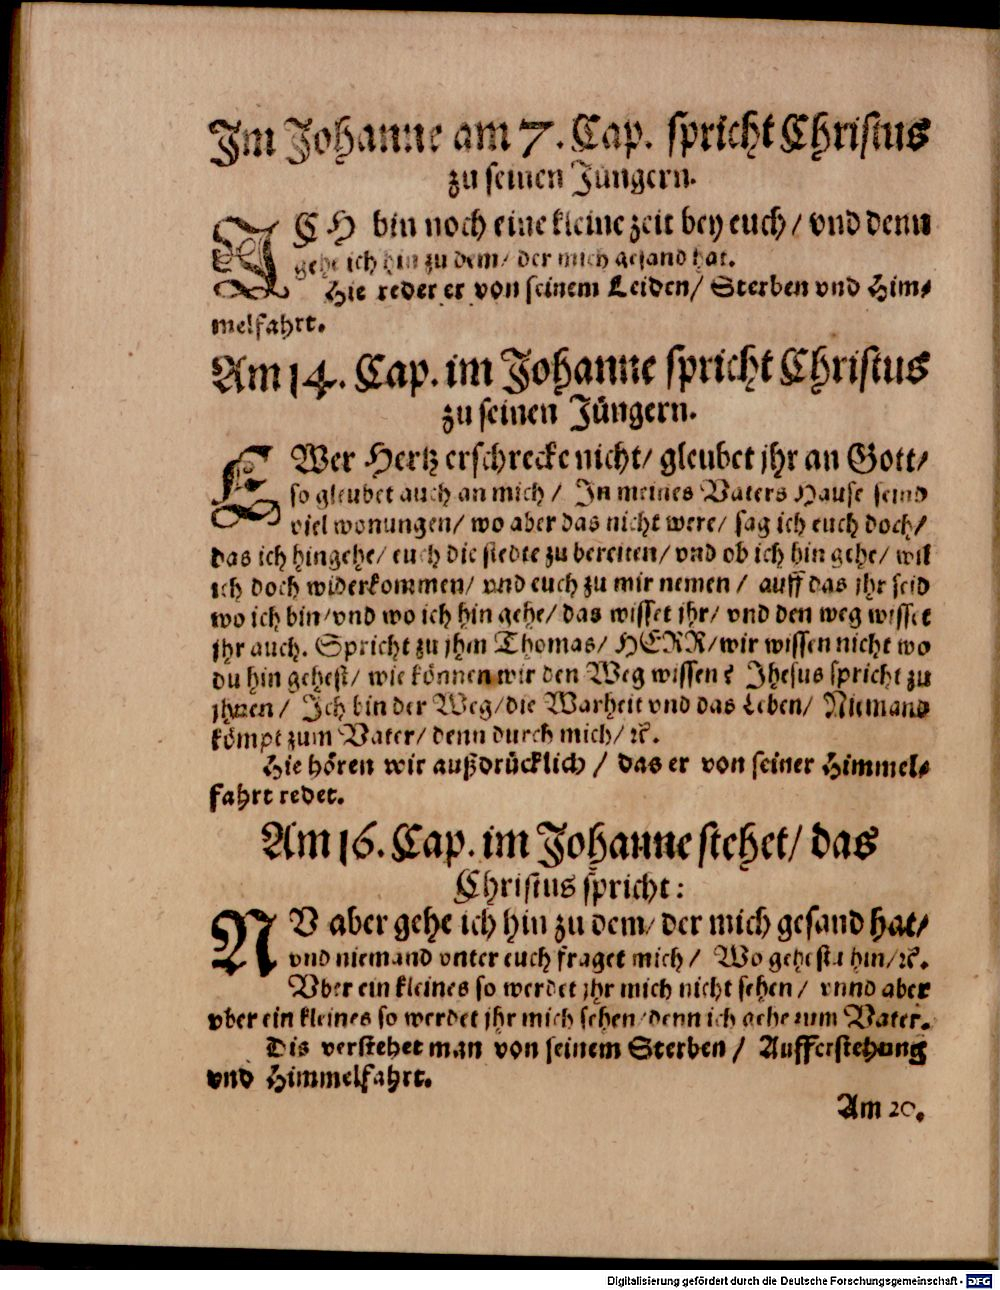 Im Johanne am 7. Cap. spricht Christus
zu seinen Jüngern.
ICH bin noch eine kleine zeit bey euch / vnd denn
gehe ich hin zu dem / der mich gesand hat.
Hie redet er von seinem Leiden / Sterben vnd Him-
melfahrt.
Am 14. Cap. im Johanne spricht Christus
zu seinen Jüngern.
EWer Hertz erschrecke nicht / gleubet jhr an Gott /
so gleubet auch an mich / In meines Vaters Hause seind
viel wonungen / wo aber das nicht were / sag ich euch doch /
das ich hingehe / euch die stedte zu bereiten / vnd ob ich hin gehe / wil
ich doch widerkommen / vnd euch zu mir nemen / auff das jhr seid
wo ich bin / vnd wo ich hin gehe / das wisset jhr / vnd den weg wisset
jhr auch. Spricht zu jhm Thomas / HERR / wir wissen nicht wo
du hin gehest / wie können wir den Weg wissen? Jhesus spricht zu
jhnen / Ich bin der Weg / die Warheit vnd das Leben / Niemand
kömpt zum Vater / denn durch mich / ꝛc.
Hie hören wir außdrücklich / das er von seiner Himmel-
fahrt redet.
Am 16. Cap. im Johanne stehet / das
Christus spricht:
NV aber gehe ich hin zu dem / der mich gesand hat /
vnd niemand vnter euch fraget mich / Wo gehestu hin / ꝛc.
Vber ein kleines so werdet jhr mich nicht sehen / vnnd aber
vber ein kleines so werdet jhr mich sehen / denn ich gehe zum Vater.
Dis verstehet man von seinem Sterben / Aufferstehung
vnd Himmelfahrt.
Am 20.
Digitalisierung gefördert durch die Deutsche Forschungsgemeinschaft - DFG